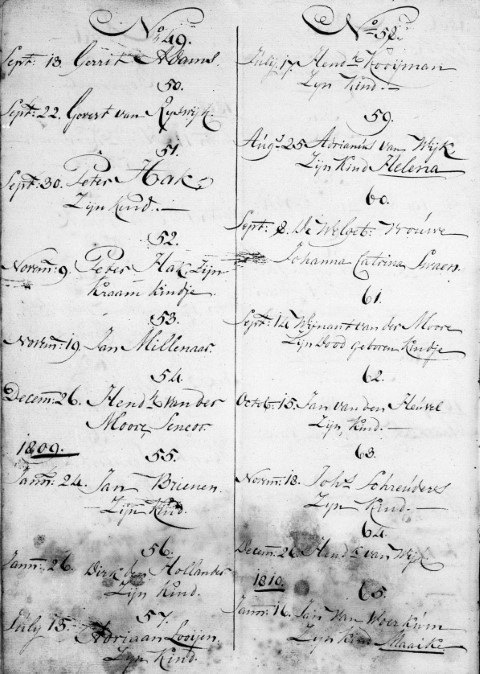 No. 49.
Sept: 13. Gerrit Adams.
50.
Sept: 22. Govert van Rijswijk.
51.
Sept: 30. Peter Hak,
Zijn Kind.
52.
Novem: 9. Peter Hak Zijn
Kraam Kindje.
53.
Novem: 19. Jan Millenaar.
54.
Decem: 26. Hend:k van der
Moore, Senior.
1809.
55.
Jann: 24. Jan Brienen
Zijn Kind.
56.
Jann: 26. Dirk den Hollander
Zijn Kind.
57.
July 15. Adriaan Looijen
Zijn Kind.
No. 58.
July 17. Hend:k Kooijman
Zijn Kind.
59.
Aug: 25 Adrianus van Wijk
Zijn Kind Helena
60.
Sept: 8. De Welget: Vrouwe
Johanna Catrina
61.
Sept: 14. Wijnant van der Moore
Zijn Dood Geboren Kindje
62.
Octob: 15. Jan van den Heuvel
Zijn Kind.
63.
Novem: 18. Joh:s Schreuders
Zijn Kind.
64.
Decem: 26. Hend:k van Wijk
1810.
65.
Jann: 16. Jan van Woerkum
Zijn Kind Maaike